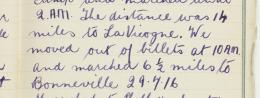 2.AM. The distance was 14
miles to LaVicogne. We
moved out of billets at 10AM.
and marched 6½ miles to
Bonneville 29.7.16